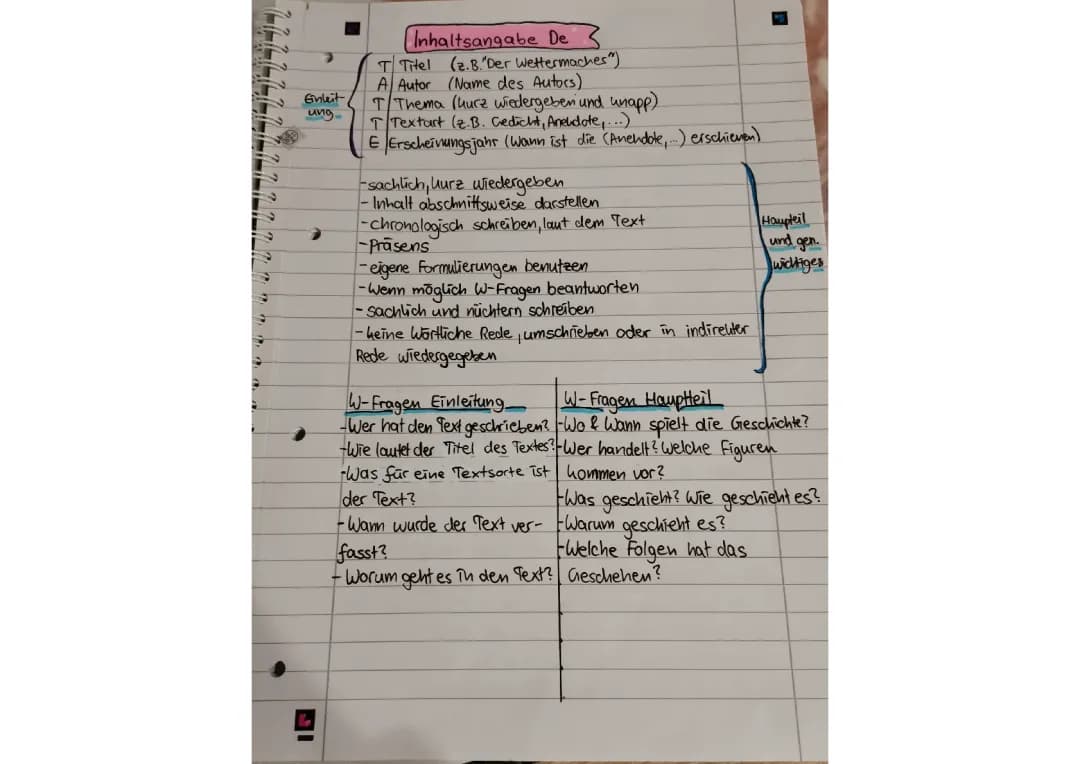 Inhaltsangabe De
T Titel (z.B. "Der Wettermaches")
A Autor (Name des Autors)
Einleit-
ung
T Thema (kurz wiedergeben und knapp)
T Textart (z.B. Gedicht, Anekdote, ...)
E Erscheinungsjahr (Wann ist die (Anekdote, ...) erschienen)
-sachlich, kurz wiedergeben
- Inhalt abschnittsweise darstellen
-chronologisch schreiben, laut dem Text
-Präsens
-eigene Formulierungen benutzen
-Wenn möglich W-Fragen beantworten
- sachlich und nüchtern schreiben
-keine Wörtliche Rede, umschrieben oder in indirekter
Rede wiedergegeben
Haupteil
und gen.
wichtiges
W-Fragen Einleitung
-Wer hat den Text geschrieben?
-Wie lautet der Titel des Textes?
-Was für eine Textsorte ist
der Text?
-Wann wurde der Text ver-
fasst?
- Worum geht es in den Text?
W-Fragen Hauptteil
-Wo & Wann spielt die Geschichte?
-Wer handelt? Welche Figuren
kommen vor?
-Was geschieht? Wie geschieht es?
-Warum geschieht es?
-Welche Folgen hat das
Geschehen?